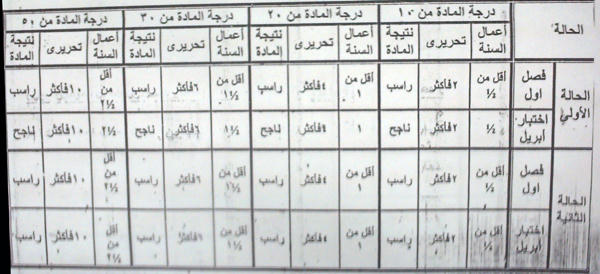 الحالة درجة المادة من ١٠ درجة المادة من ٢٠ درجة المادة من ٣٠ درجة المادة من ٥٠
أعمال السنة تحريرى نتيجة المادة أعمال السنة تحريرى نتيجة المادة أعمال السنة تحريرى نتيجة المادة أعمال السنة تحريرى نتيجة المادة
الحالة الأولي فصل اول أقل من ½ ٢فأكثر راسب أقل من ١ ٤فأكثر راسب أقل من ١½ ٦فأكثر راسب أقل من ٢½ ١٠فأكثر راسب
اختبار ابريل ½ ٢فأكثر ناجح ١ ٤فأكثر ناجح ١½ ٦فأكثر ناجح ٢½ ١٠فأكثر ناجح
الحالة الثانية فصل اول أقل من ½ ٢فأكثر راسب أقل من ١ ٤فأكثر راسب أقل من ١½ ٦فأكثر راسب أقل من ٢½ ١٠فأكثر راسب
اختبار ابريل أقل من ½ ٢فأكثر راسب أقل من ١ ٤فأكثر راسب أقل من ١½ ٦فأكثر راسب أقل من ٢½ ١٠فأكثر راسب